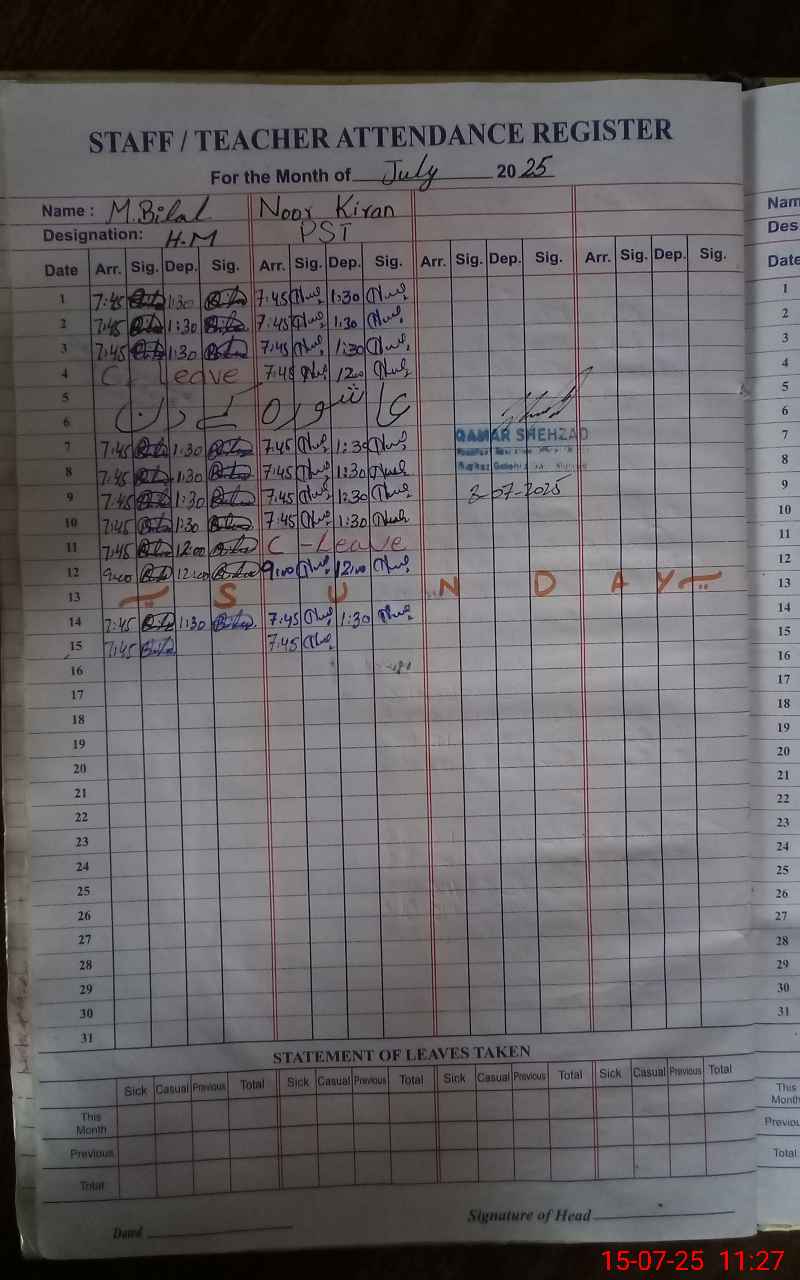 STAFF / TEACHER ATTENDANCE REGISTER
For the Month of July 2025
Name : M.Bilal Noor Kiran
Designation: H.M PST
Date Arr. Sig. Dep. Sig. Arr. Sig. Dep. Sig. Arr. Sig. Dep. Sig. Arr. Sig. Dep. Sig.
1 7:45 1:30 7:45 1:30
2 7:45 1:30 7:45 1:30
3 7:45 1:30 7:45 1:30
4 C Leave 7:45 1200
5
6 عاشورہ
7 7:45 1:30 7:45 1:30 QAMAR SHEHZAD
8 7:45 1:30 7:45 1:30
9 7:45 1:30 7:45 1:30 8-07-2025
10 7:45 1:30 7:45 1:30
11 7:45 12:00 C - Leave
12 9:00 12:00 9:00 12:00
13 S U N D A Y
14 7:45 1:30 7:45 1:30
15 7:45 7:45
16
17
18
19
20
21
22
23
24
25
26
27
28
29
30
31
STATEMENT OF LEAVES TAKEN
Sick Casual Previous Total Sick Casual Previous Total Sick Casual Previous Total Sick Casual Previous Total
This Month
Previous
Total
Signature of Head
Nam
Des
Date
1
2
3
4
5
6
7
8
9
10
11
12
13
14
15
16
17
18
19
20
21
22
23
24
25
26
27
28
29
30
31
This
Month
Previou
Total
15-07-25 11:27